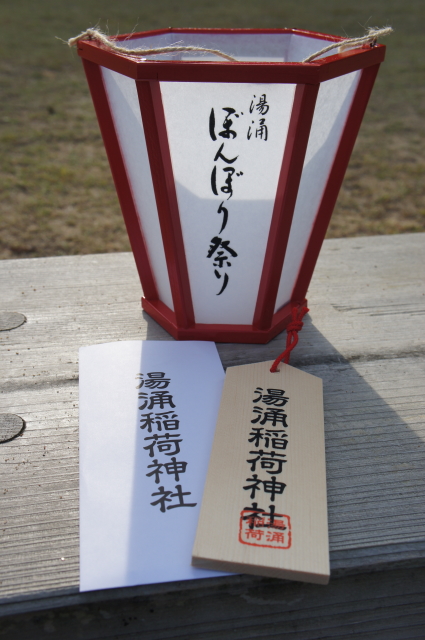 湯涌
ぼんぼり祭り
湯涌稲荷神社
湯涌稲荷神社
湯涌
稲荷